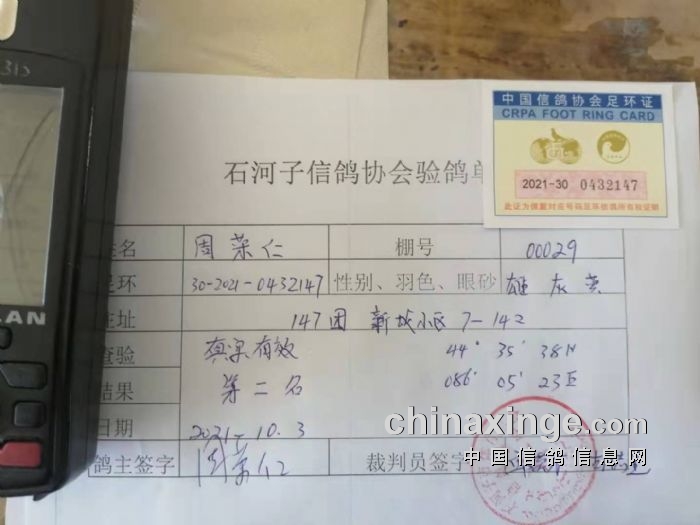 315
中国信鸽协会足环证
CRPA FOOT RING CARD
2021-30 0432147
此证为佩戴对应号码足环信鸽所有权证明
石河子信鸽协会验鸽单
名 周荣仁 棚号 00029
足环 30-2021-0432147 性别、羽色、眼砂 雄 灰 黄
住址 147团 新城小区 7-142
查验 真实有效 44° 35' 38N
结果 第二名 086° 05' 23E
日期 2021.10.3
鸽主签字 周荣仁 裁判员签字
LAN
chinaxinge.com
中国信鸽信息网